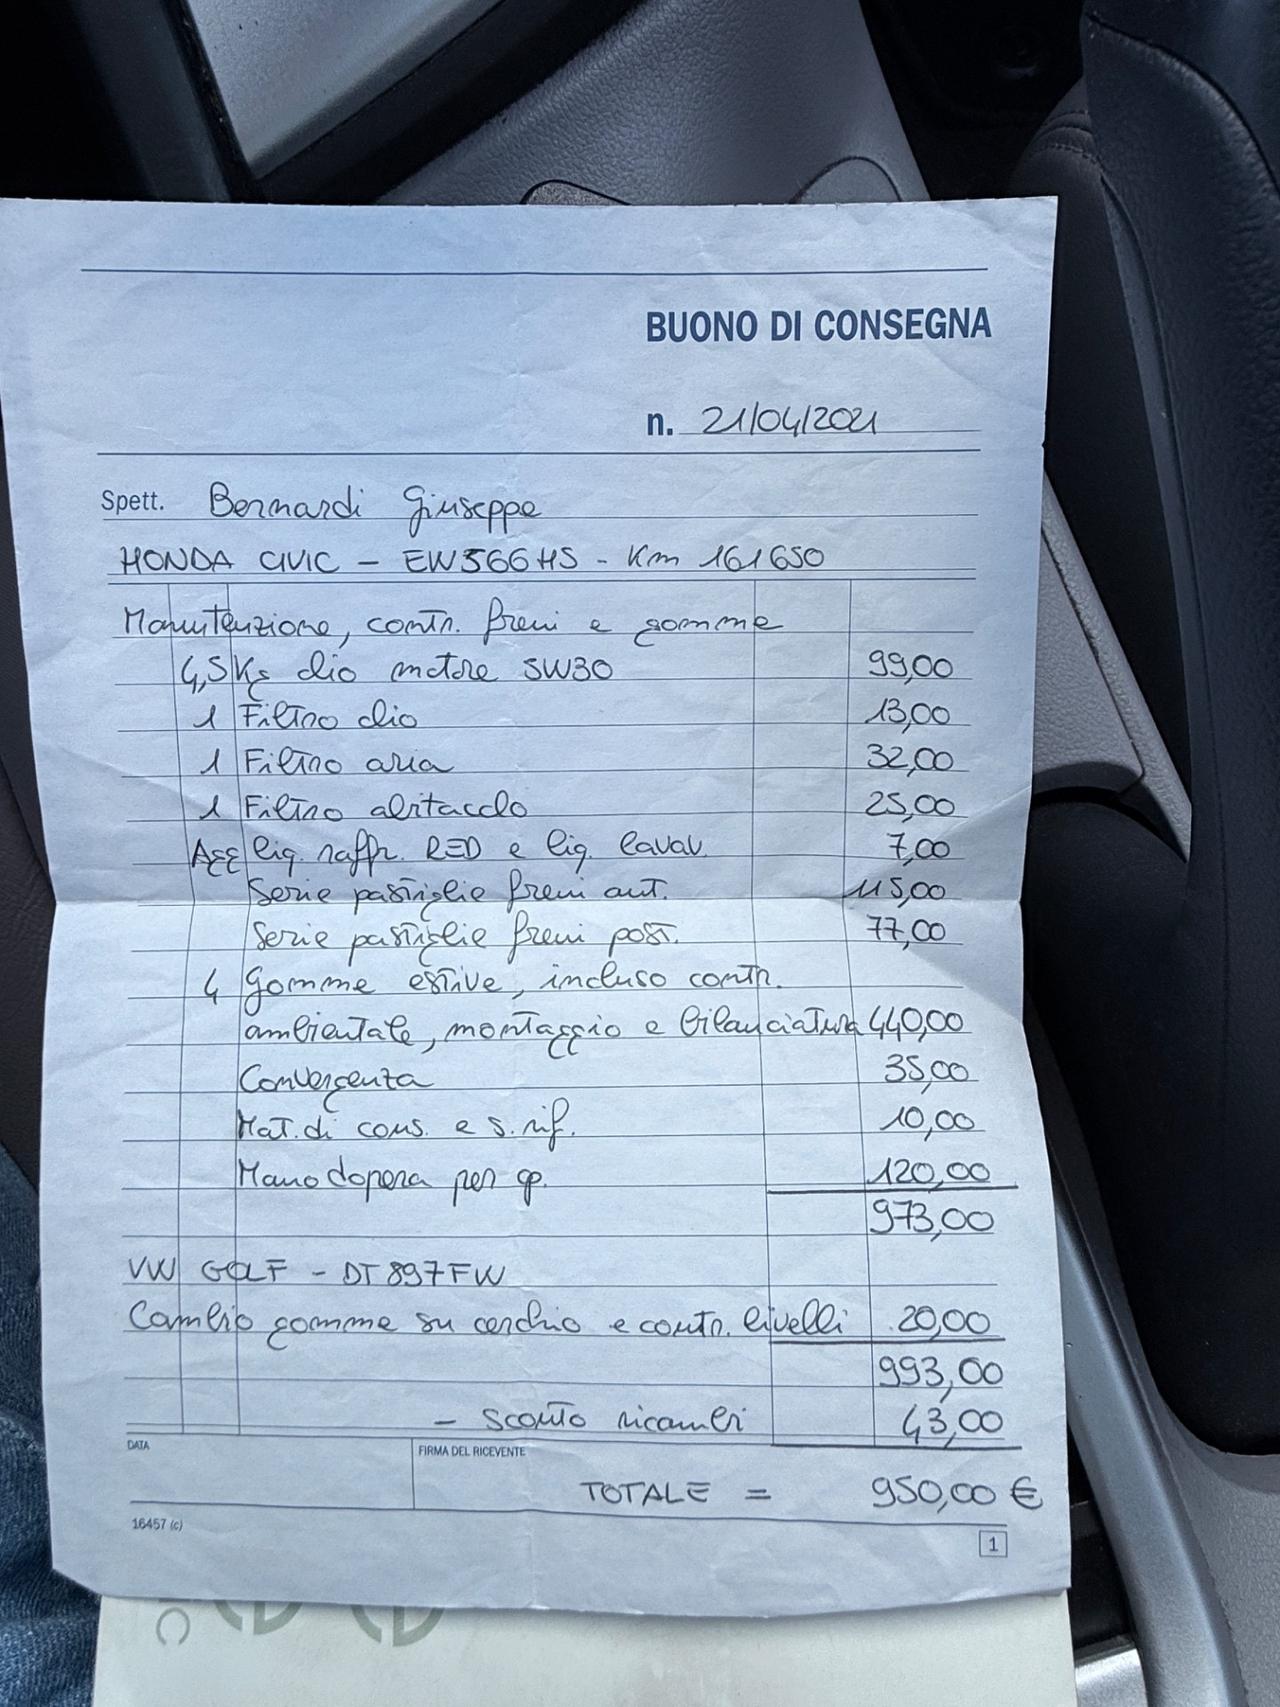 BUONO DI CONSEGNA
n. 21/04/2021
Spett. Bernardi Giuseppe
HONDA CIVIC - EW566HS - Km 161650
Manutenzione, contr. freni e gomme
4,5 Kg olio motore 5W30 99,00
1 Filtro olio 13,00
1 Filtro aria 32,00
1 Filtro abitacolo 25,00
Agg liq. raffr. RED e liq. lavav. 7,00
Serie pastiglie freni ant. 115,00
Serie pastiglie freni post. 77,00
4 Gomme estive, incluso contr.
ambientale, montaggio e bilanciatura 440,00
Convergenza 35,00
Mat. di cons. e s. rif. 10,00
Manodopera per op. 120,00
973,00
VW GOLF - DT897FW
Cambio gomme su cerchio e contr. livelli 20,00
993,00
- sconto ricambi 43,00
DATA
FIRMA DEL RICEVENTE
TOTALE = 950,00 €
16457 (c)
1